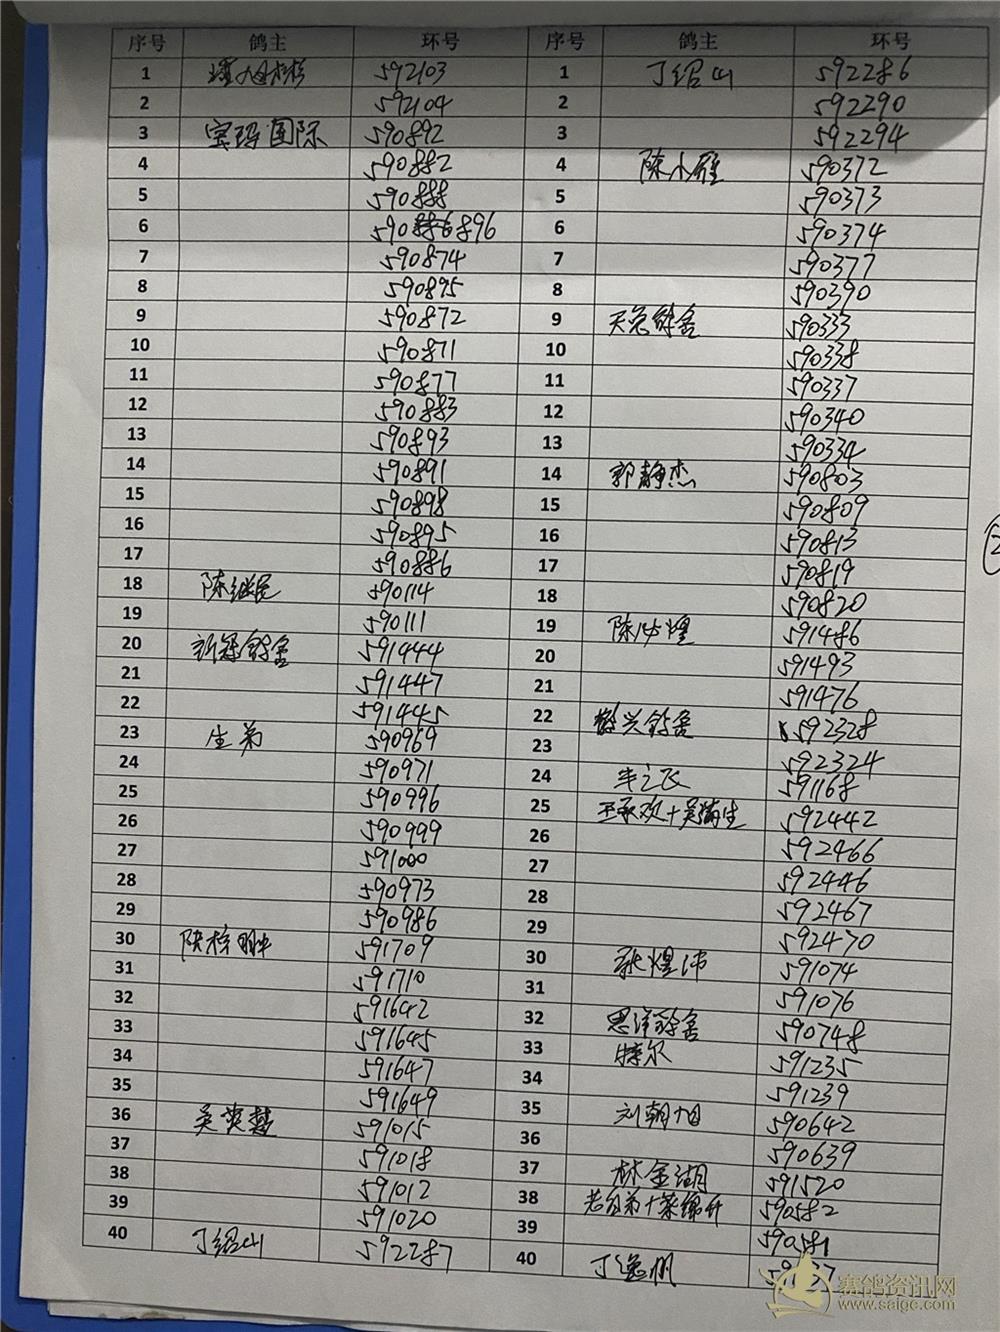 序号 鸽主 环号 序号 鸽主 环号
1 592103 1 丁绍山 592286
2 592104 2 592290
3 宝玛国际 590892 3 592294
4 590882 4 陈小雁 590372
5 590888 5 590373
6 590 896 6 590374
7 590874 7 590377
8 590895 8 590390
9 590872 9 天兔鸽舍 590333
10 590871 10 590338
11 590877 11 590337
12 590883 12 590340
13 590893 13 590334
14 590891 14 郭静杰 590803
15 590898 15 590809
16 590895 16 590813
17 590886 17 590819
18 陈继民 590114 18 590820
19 590111 19 陈 煌 591486
20 新冠鸽舍 591444 20 591493
21 591447 21 591476
22 591445 22 兴鸽舍 592328
23 生弟 590969 23 592324
24 590971 24 591168
25 590996 25 王承欢+吴 生 592442
26 590999 26 592466
27 591000 27 592446
28 590973 28 592467
29 590986 29 592470
30 591709 30 张煜沛 591074
31 591710 31 591076
32 591642 32 思泽鸽舍 590748
33 591645 33 特尔 591235
34 591647 34 591239
35 591649 35 刘朝旭 590642
36 吴 591015 36 590639
37 591018 37 林金湖 591520
38 591012 38 590582
39 591020 39 590581
40 丁绍山 592287 40 丁逸帆
赛鸽资讯网
www.saige.com